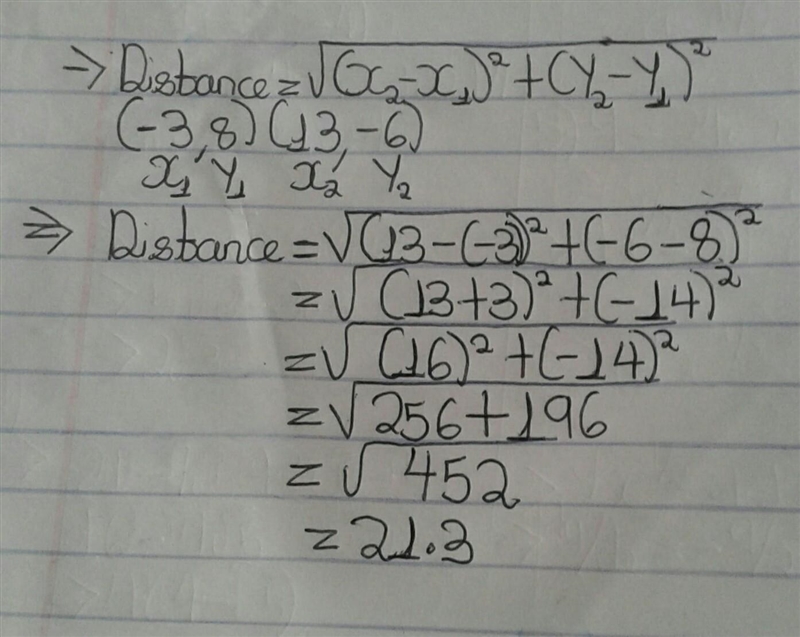 → Distance = √(x₂-x₁)² + (Y₂-Y₁)²
(-3, 8) (13, -6)
x₁ Y₁ x₂ Y₂
⇒ Distance = √(13-(-3))² + (-6-8)²
= √(13+3)² + (-14)²
= √(16)² + (-14)²
= √256+196
= √452
= 21.3